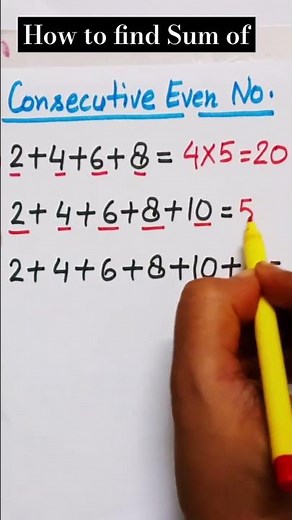 How to find Sum of
Consecutive Even No.
2+4+6+8= 4×5=20
2+4+6+8+10=5
2+4+6+8+10+